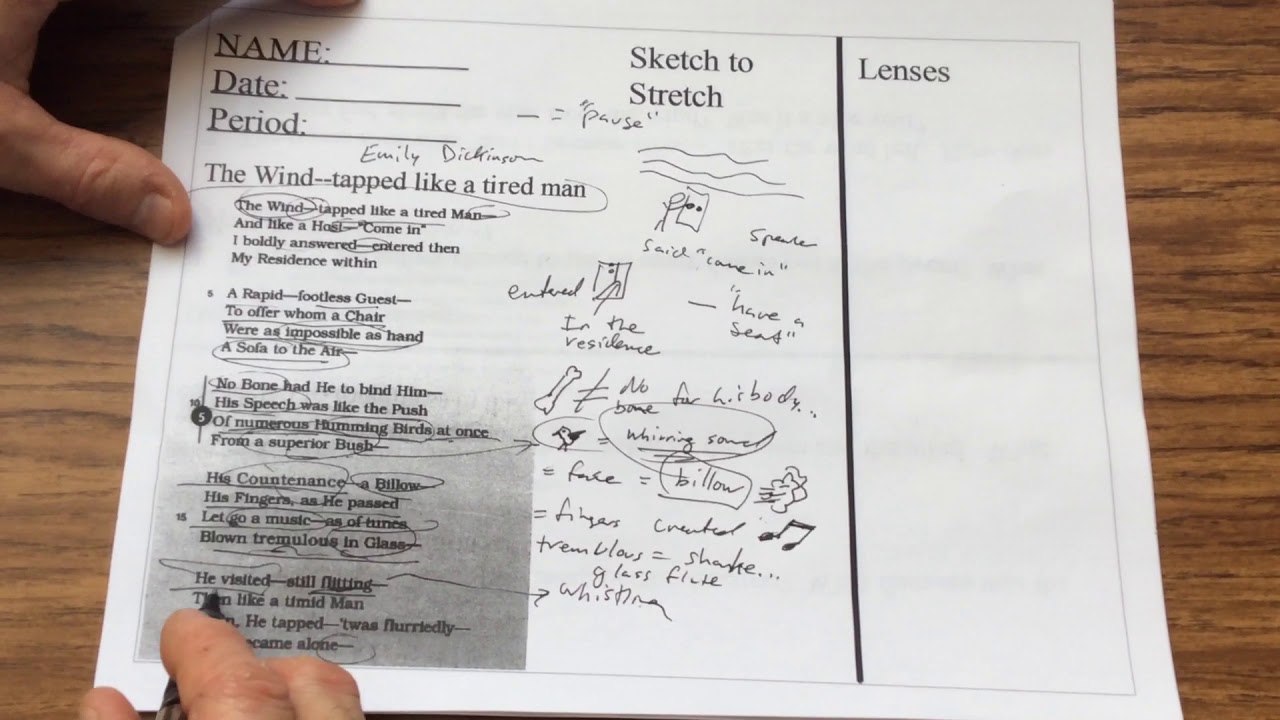 NAME:
Date:
Period:
Sketch to
Stretch
Lenses
— = "pause"
Emily Dickinson
The Wind--tapped like a tired man
The Wind—tapped like a tired Man—
And like a Host—"Come in"
I boldly answered—entered then
My Residence within
5 A Rapid—footless Guest—
To offer whom a Chair
Were as impossible as hand
A Sofa to the Air—
No Bone had He to bind Him—
10 His Speech was like the Push
5 Of numerous Humming Birds at once
From a superior Bush—
His Countenance—a Billow—
His Fingers, as He passed
15 Let go a music—as of tunes
Blown tremulous in Glass—
He visited—still flitting—
Then like a timid Man
He tapped—'twas flurriedly—
came alone—
said "come in"
entered
In the
residence
— "have a
seat"
≠ No
bone
for his body...
= whirring sound
= face = billow
= fingers created
tremblous = shake...
glass flute